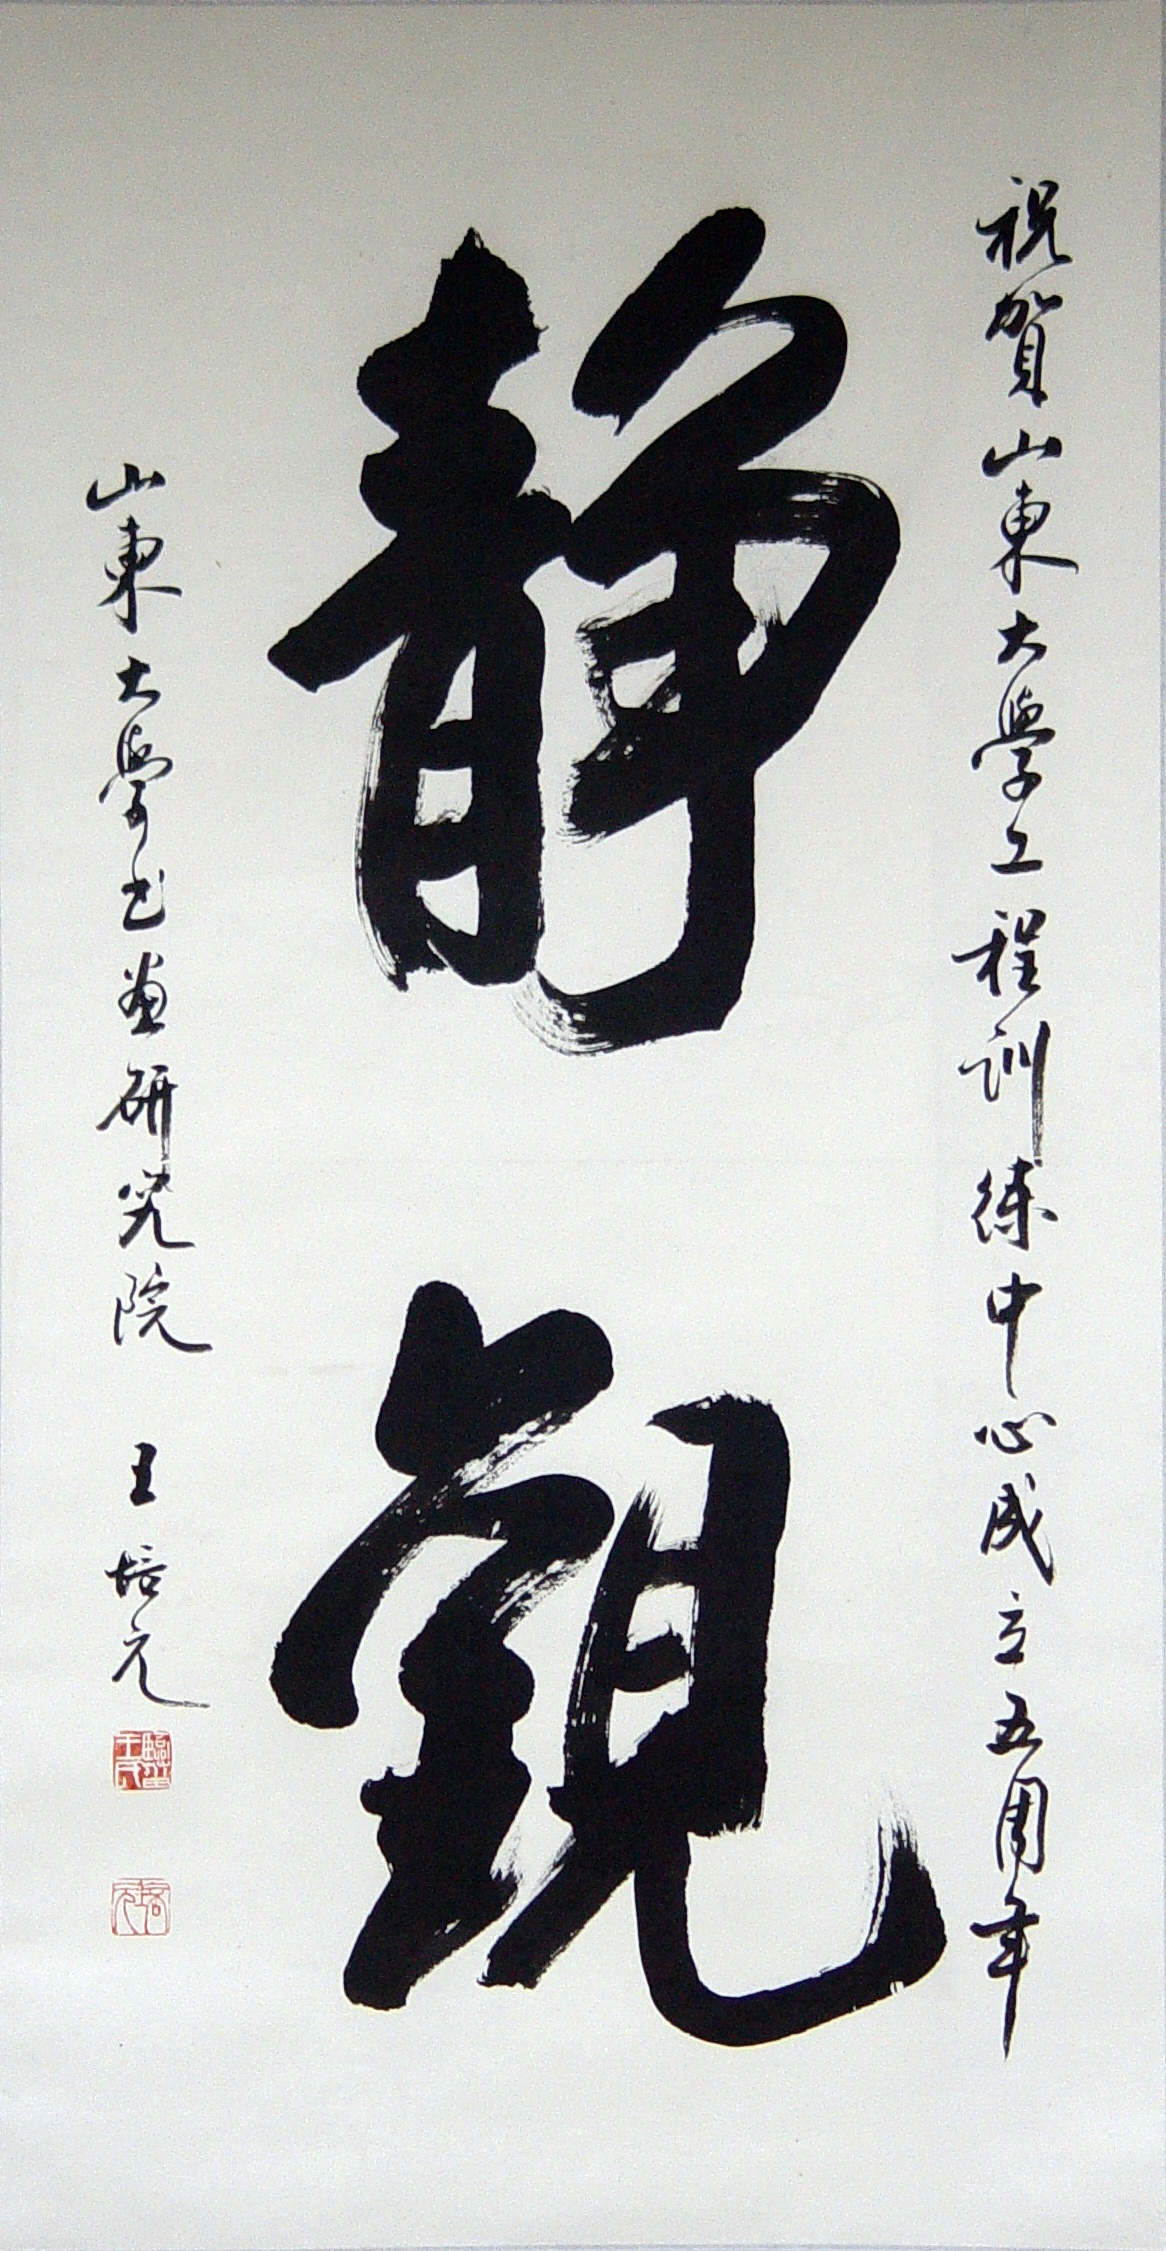 祝賀山東大學工程訓練中心成立五周年
靜觀
山東大學書畫研究院 王培元